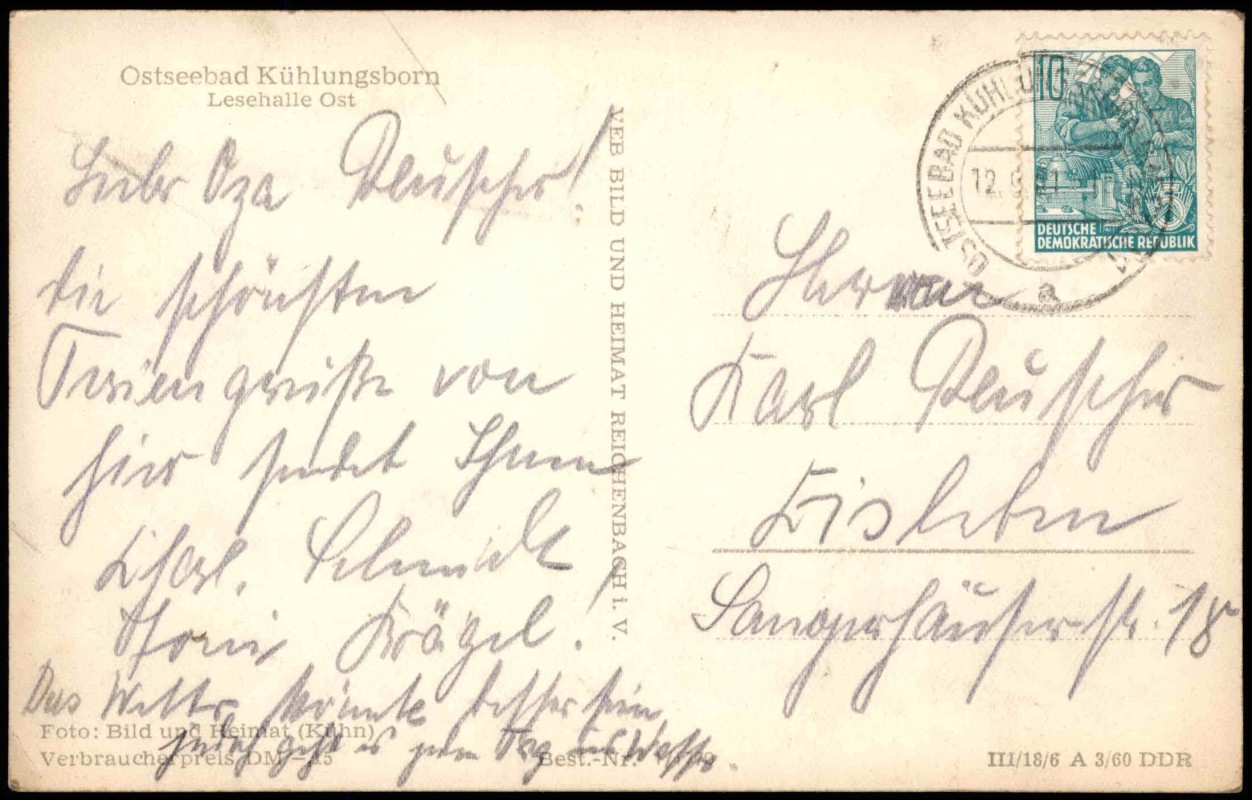 Ostseebad Kühlungsborn
Lesehalle Ost
Liebr Opa Pluscher!
die schönsten
Feriengrüße von
hier sendet Ihnen
Schmidt
Krägel.
Das Wetter könnte besser sein,
jedoch geht es jeden Tag ins Wasser.
Foto: Bild und Heimat (Kühn)
Verbraucherpreis DM -,15
Best.-Nr.
VEB BILD UND HEIMAT REICHENBACH i. V.
OSTSEEBAD KÜHLUNGSBORN
12.
a
10
5
DEUTSCHE
DEMOKRATISCHE REPUBLIK
Herrn
Karl Pluscher
Eisleben
Sangerhäuserstr. 18
III/18/6 A 3/60 DDR